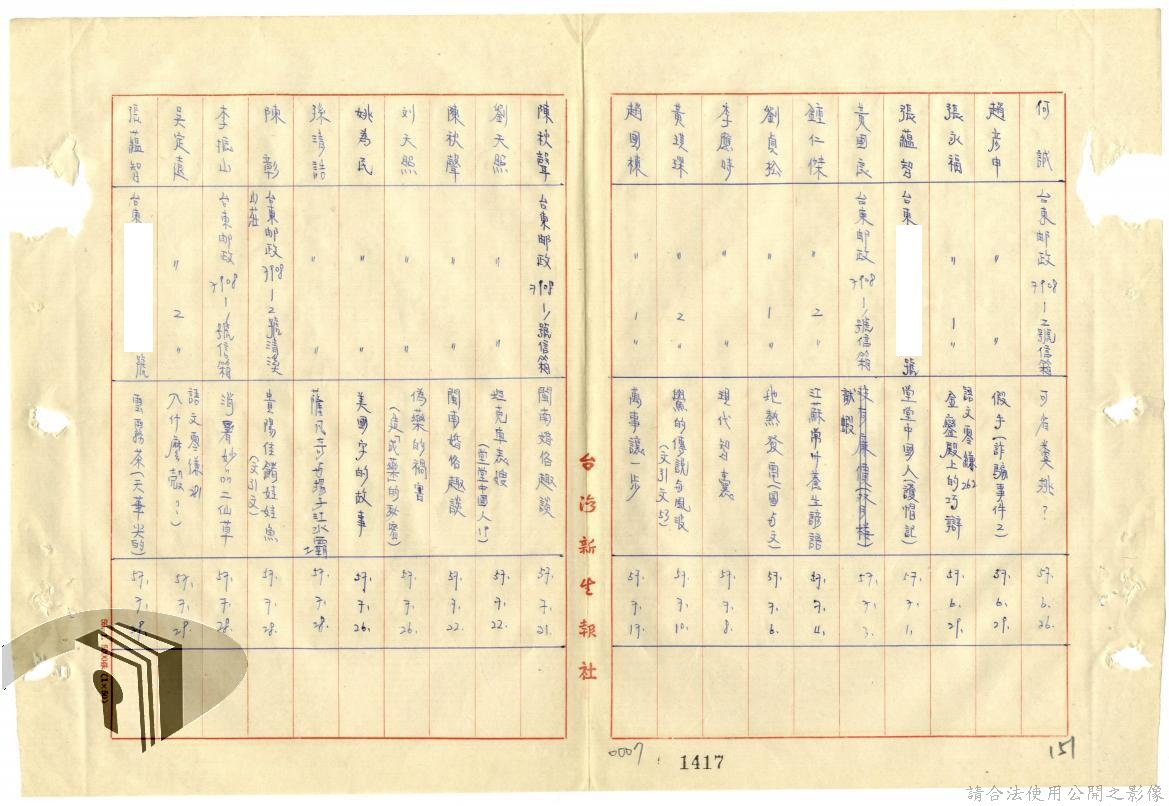 何誠 台東郵政7908-2號信箱 可省糞挑? 57.6.26.
趙彦申 〃 〃 假手(詐騙事件2) 57.6.29.
張永福 〃 1 〃 語文零鎌262 金鑾殿上的巧辯 57.6.29.
張蘊智 台東 號 堂堂中國人(護帽記) 57.7.1.
黃國良 台東郵政7908-1號信箱 57.7.3.
鍾仁傑 〃 2 〃 江蘇常州養生諺語 57.7.4.
劉貞松 〃 1 〃 地熱發電 57.7.6.
李應時 〃 〃 現代智囊 57.7.8.
黃璞琛 〃 2 〃 鱟的傳說与風味(文引文53) 57.7.10.
趙國棟 〃 1 〃 萬事讓一步 57.7.17.
台灣新生報社
陳秋聲 台東郵政7908-1號信箱 閩南婚俗趣談 57.7.21.
劉天照 〃 〃 坦克車表嫂(堂堂中國人) 57.7.22.
陳秋聲 〃 〃 閩南婚俗趣談 57.7.22.
刘天照 〃 〃 偽藥的禍害(是「成藥」的秘密) 57.7.26.
姚為民 〃 〃 美國字的故事 57.7.26.
孫清詰 〃 〃 薩凡奇与揚子江水壩 57.7.28.
陳彰 台東郵政7908-2號清溪山莊 貴陽佳餚娃娃魚(文引文) 57.7.28.
李振山 台東郵政7908-1號信箱 消暑妙品二仙草 57.7.28.
吳定遠 〃 2 〃 語文零鎌 什麼殼? 57.7.29.
張蘊智 台東 號 雲霧茶(天華尖的) 57.7.29.
0007
1417
151
請合法使用公開之影像